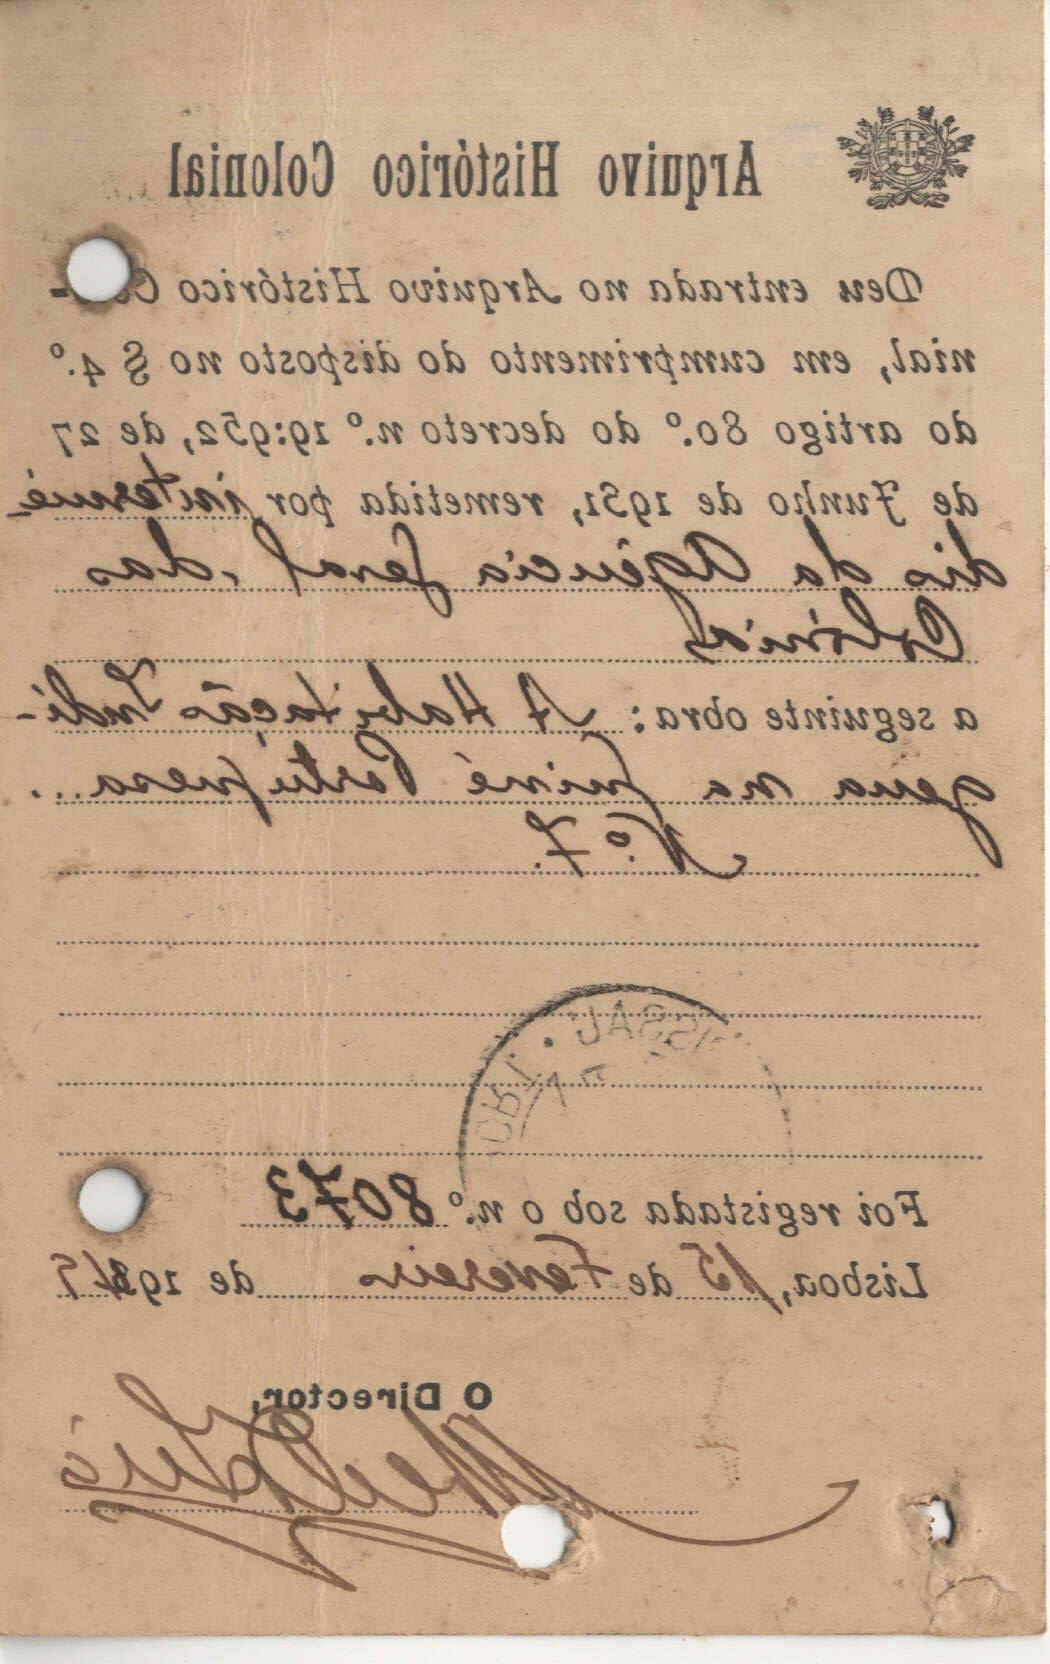 Arquivo Histórico Colonial
Deu entrada no Arquivo Histórico Co-
nial, em cumprimento do disposto no § 4.º
do artigo 80.º do decreto n.º 19:952, de 27
de Junho de 1931, remetida por intermé-
dio da Agência Geral das
Colónias
a seguinte obra: A Habitação Indí-
gena na Guiné Portuguesa...
N.º 7.
Foi registada sob o n.º 8073
Lisboa, 15 de Fevereiro de 19
O Director,